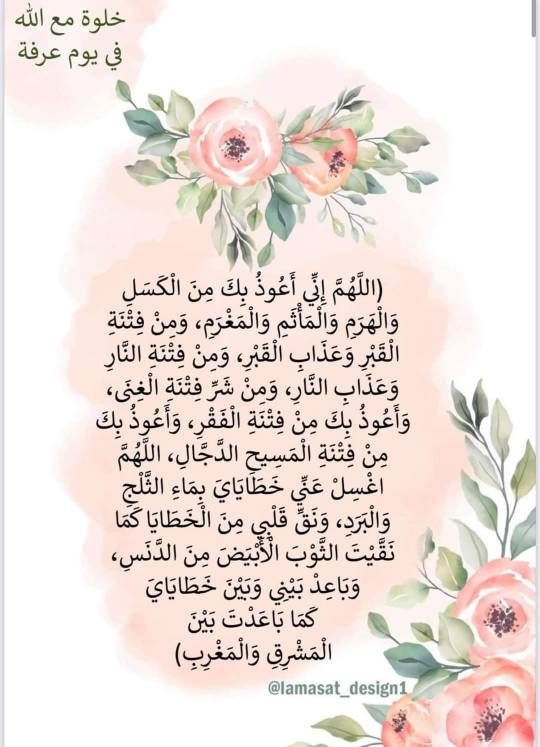 خلوة مع الله
في يوم عرفة
(اللَّهُمَّ إِنِّي أَعُوذُ بِكَ مِنَ الْكَسَلِ
وَالْهَرَمِ وَالْمَأْثَمِ وَالْمَغْرَمِ، وَمِنْ فِتْنَةِ
الْقَبْرِ وَعَذَابِ الْقَبْرِ، وَمِنْ فِتْنَةِ النَّارِ
وَعَذَابِ النَّارِ، وَمِنْ شَرِّ فِتْنَةِ الْغِنَى،
وَأَعُوذُ بِكَ مِنْ فِتْنَةِ الْفَقْرِ، وَأَعُوذُ بِكَ
مِنْ فِتْنَةِ الْمَسِيحِ الدَّجَّالِ، اللَّهُمَّ
اغْسِلْ عَنِّي خَطَايَايَ بِمَاءِ الثَّلْجِ
وَالْبَرَدِ، وَنَقِّ قَلْبِي مِنَ الْخَطَايَا كَمَا
نَقَّيْتَ الثَّوْبَ الْأَبْيَضَ مِنَ الدَّنَسِ،
وَبَاعِدْ بَيْنِي وَبَيْنَ خَطَايَايَ
كَمَا بَاعَدْتَ بَيْنَ
الْمَشْرِقِ وَالْمَغْرِبِ)
@lamasat_design1